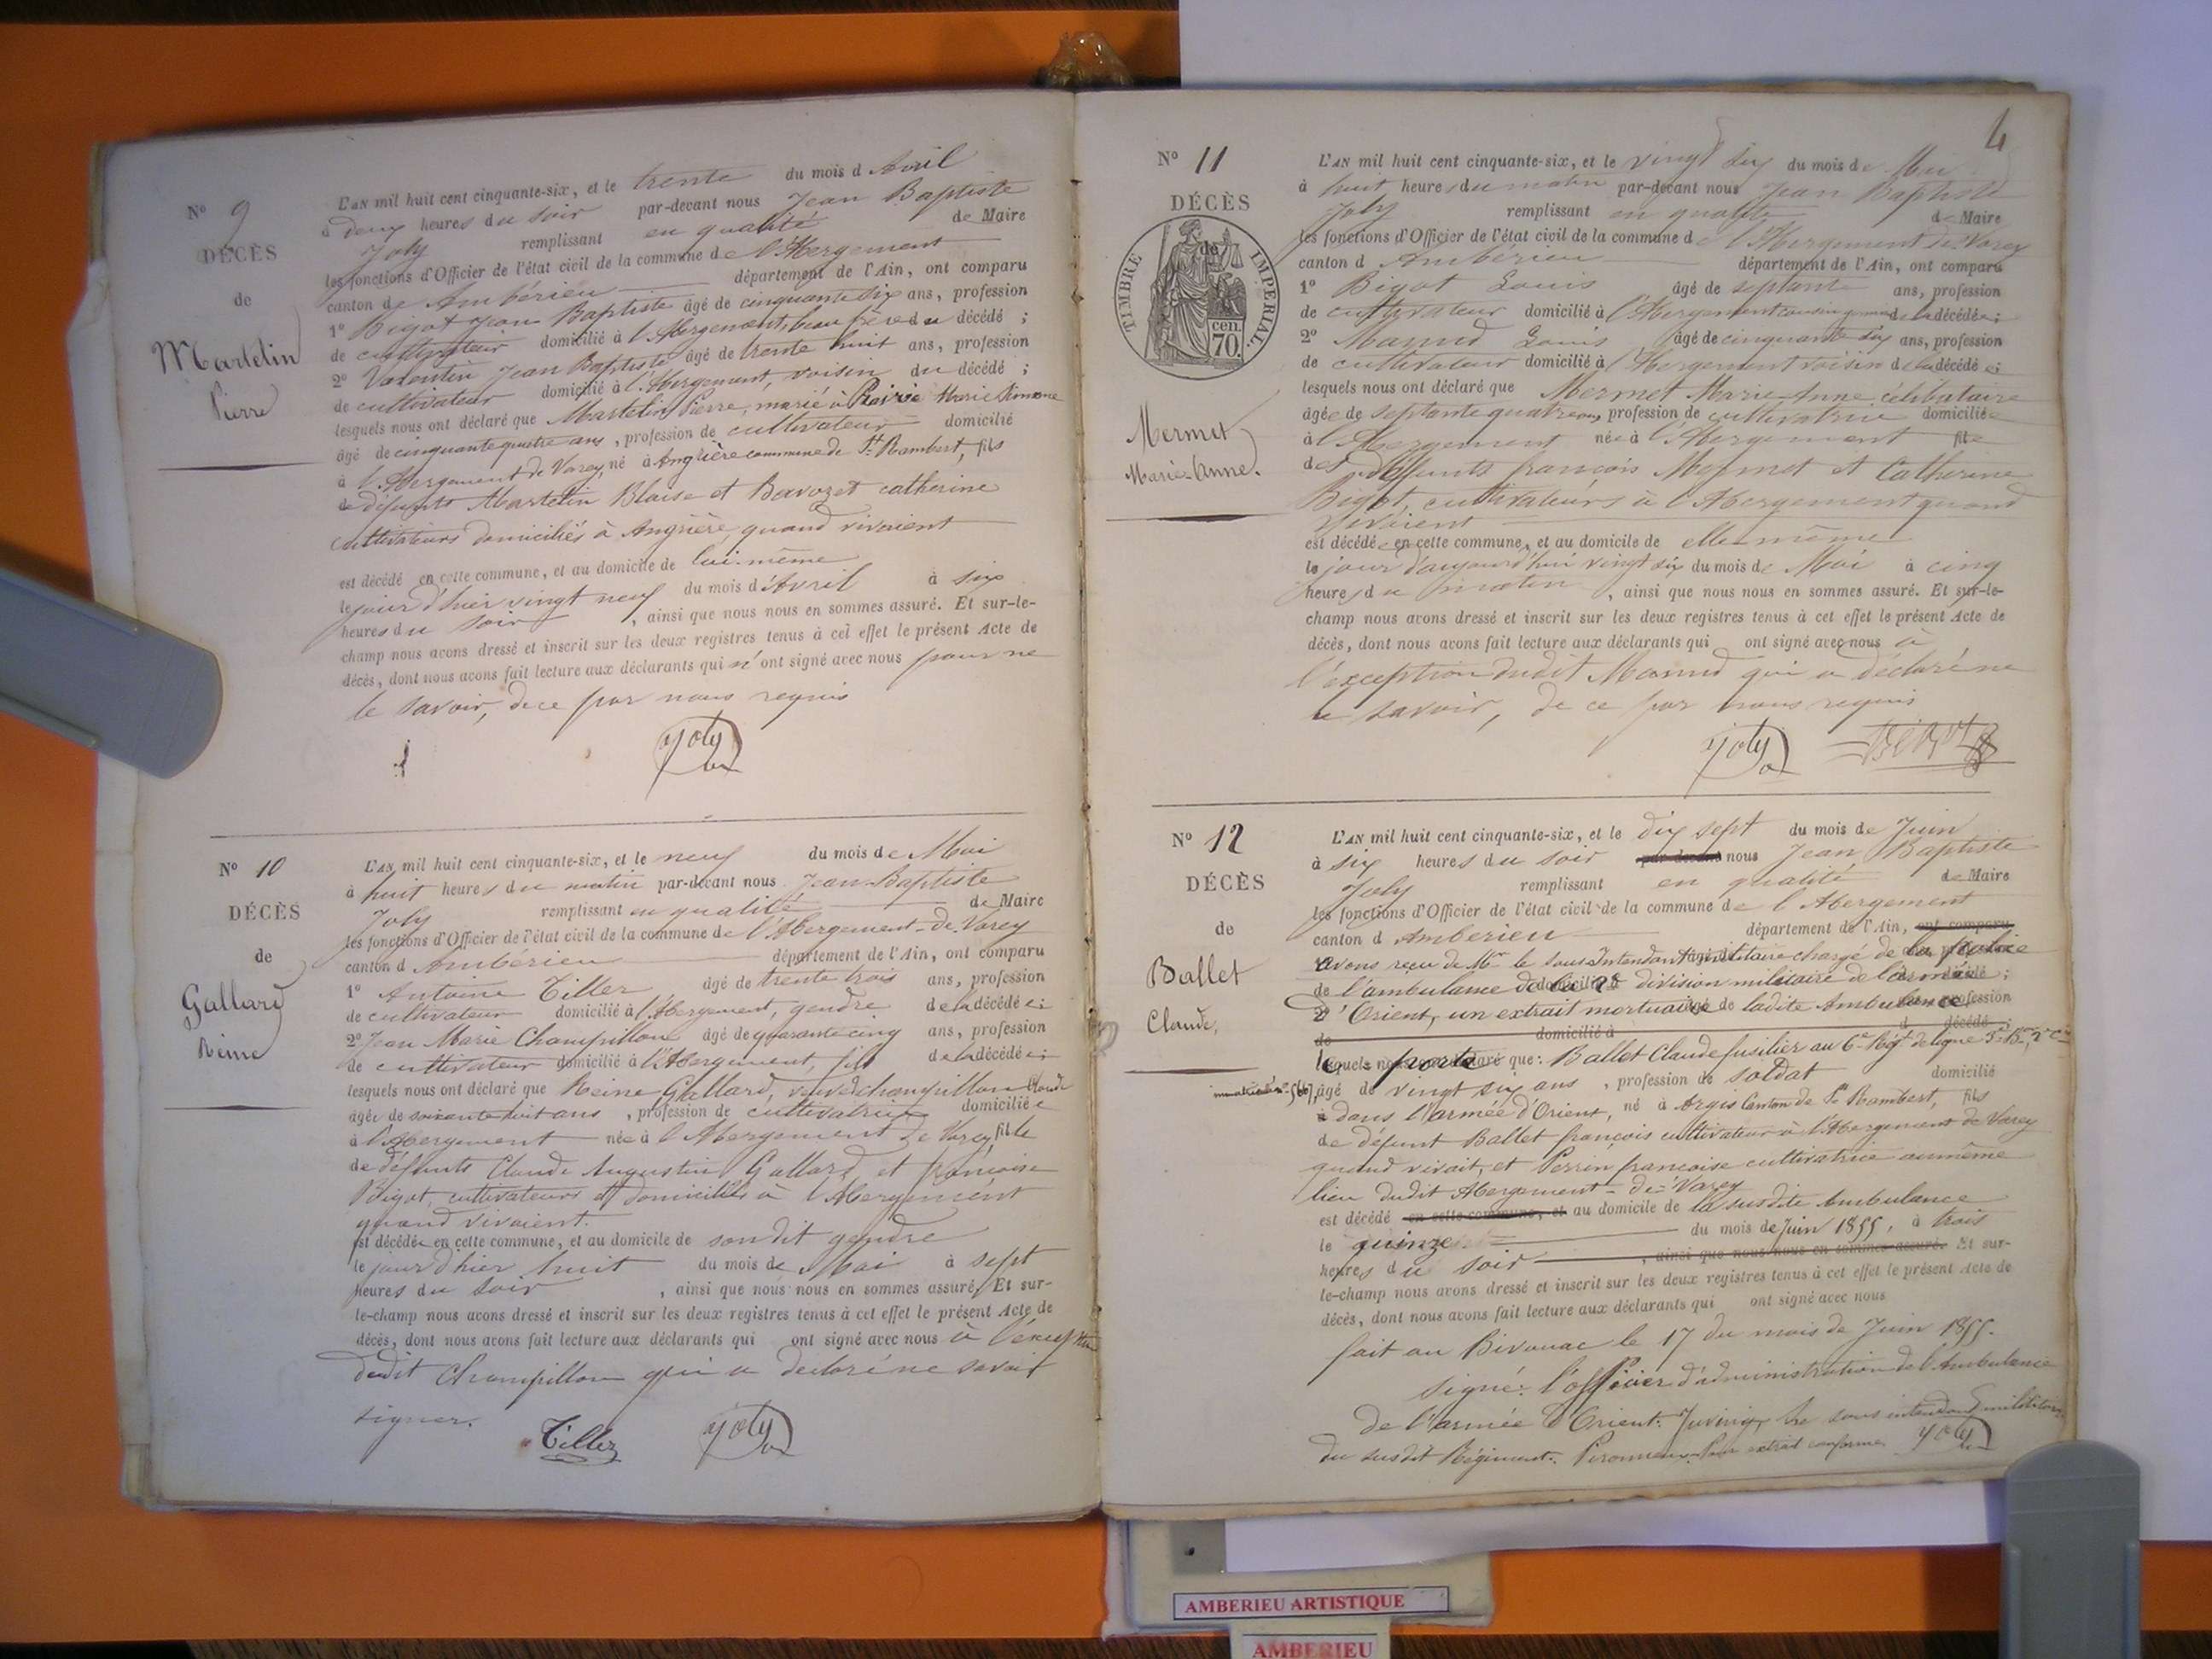 N° 9
DÉCÈS
de
Martelin
Pierre
L'AN mil huit cent cinquante-six, et le trente du mois d'Avril
à deux heures du soir par-devant nous Jean Baptiste
Joly remplissant en qualité de Maire
les fonctions d'Officier de l'état civil de la commune de l'Abergement
canton de Ambérieu département de l'Ain, ont comparu
1° Bigot Jean Baptiste âgé de cinquante six ans, profession
de cultivateur domicilié à l'Abergement, beau frère du décédé ;
2° Valentin Jean Baptiste âgé de trente huit ans, profession
de cultivateur domicilié à l'Abergement, voisin du décédé ;
lesquels nous ont déclaré que Martelin Pierre, marié à Marie Simonne
âgé de cinquante quatre ans, profession de cultivateur domicilié
à l'Abergement de Varey, né à Angrière commune de St Rambert, fils
de défunts Martelin Blaise et Bavozet catherine
cultivateurs domiciliés à Angrière, quand vivaient
est décédé en cette commune, et au domicile de lui-même
le jour d'hier vingt neuf du mois d'Avril à six
heures du soir, ainsi que nous nous en sommes assuré. Et sur-le-
champ nous avons dressé et inscrit sur les deux registres tenus à cet effet le présent Acte de
décès, dont nous avons fait lecture aux déclarants qui n'ont signé avec nous pour ne
le savoir, de ce par nous requis
Joly
N° 10
DÉCÈS
de
Gallard
Reine
L'AN mil huit cent cinquante-six, et le neuf du mois de Mai
à huit heures du matin par-devant nous Jean-Baptiste
Joly remplissant en qualité de Maire
les fonctions d'Officier de l'état civil de la commune de l'Abergement-de-Varey
canton d Ambérieu département de l'Ain, ont comparu
1° Antoine Tiller âgé de trente trois ans, profession
de cultivateur domicilié à l'Abergement, gendre de la décédée ;
2° Jean Marie Champillon âgé de quarante cinq ans, profession
de cultivateur domicilié à l'Abergement, fils de la décédée ;
lesquels nous ont déclaré que Reine Gallard, veuve de Champillon Claude
âgée de soixante huit ans, profession de cultivatrice domiciliée
à l'Abergement née à l'Abergement de Varey, fille
de défunts Claude Augustin Gallard et françoise
Bigot, cultivateurs et domiciliés à l'Abergement
quand vivaient.
est décédée en cette commune, et au domicile de son dit gendre
le jour d'hier huit du mois de Mai à sept
heures du soir, ainsi que nous nous en sommes assuré. Et sur-
le-champ nous avons dressé et inscrit sur les deux registres tenus à cet effet le présent Acte de
décès, dont nous avons fait lecture aux déclarants qui ont signé avec nous à l'exception
dudit Champillon qui a déclaré ne savoir
signer.
Tiller Joly
4
N° 11
DÉCÈS
de
TIMBRE IMPERIAL
70 cen.
Mermet
Marie-Anne.
L'AN mil huit cent cinquante-six, et le vingt six du mois de Mai
à huit heures du matin par-devant nous Jean Baptiste
Joly remplissant en qualité de Maire
les fonctions d'Officier de l'état civil de la commune de l'Abergement de Varey
canton d Ambérieu département de l'Ain, ont comparu
1° Bigot Louis âgé de septante ans, profession
de cultivateur domicilié à l'Abergement cousin germain de la décédée ;
2° Louis âgé de cinquante six ans, profession
de cultivateur domicilié à l'Abergement voisin de la décédée ;
lesquels nous ont déclaré que Mermet Marie-Anne célibataire
âgée de septante quatre ans, profession de cultivatrice domiciliée
à l'Abergement née à l'Abergement fille
des deffunts françois Mermet et Catherine
Bigot, cultivateurs à l'Abergement quand
vivaient
est décédée en cette commune, et au domicile de elle-même
le jour d'aujourd'hui vingt six du mois de Mai à cinq
heures du matin, ainsi que nous nous en sommes assuré. Et sur-le-
champ nous avons dressé et inscrit sur les deux registres tenus à cet effet le présent Acte de
décès, dont nous avons fait lecture aux déclarants qui ont signé avec nous à
l'exception dudit qui a déclaré ne
le savoir, de ce par nous requis
Joly Bigot
N° 12
DÉCÈS
de
Ballet
Claude,
L'AN mil huit cent cinquante-six, et le dix sept du mois de Juin
à six heures du soir par-devant nous Jean Baptiste
Joly remplissant en qualité de Maire
les fonctions d'Officier de l'état civil de la commune de l'Abergement
canton d Ambérieu département de l'Ain, ont comparu
avons reçu de Mr le sous-Intendant militaire chargé de la police
de l'ambulance de la 2e division militaire de l'armée
d'Orient, un extrait mortuaire de ladite Ambulance
de domicilié à d décédé ;
lequel porte que : Ballet Claude fusilier au 6e Rgt de ligne
immatriculé n° 5667, âgé de vingt six ans, profession de soldat domicilié
à dans l'armée d'Orient, né à Argis Canton de St Rambert, fils
de défunt Ballet françois cultivateur à l'Abergement de Varey
quand vivait, et Perrin françoise cultivatrice au même
lieu dudit Abergement-de-Varey
est décédé en cette commune, et au domicile de la susdite Ambulance
le quinze du mois de Juin 1855, à trois
heures du soir, ainsi que nous nous en sommes assuré. Et sur-
le-champ nous avons dressé et inscrit sur les deux registres tenus à cet effet le présent Acte de
décès, dont nous avons fait lecture aux déclarants qui ont signé avec nous
fait au Bivouac le 17 du mois de Juin 1855.
signé : l'officier d'administration de l'Ambulance
de l'armée d'Orient : le sous intendant militaire
du susdit Régiment : Pour extrait conforme Joly
AMBERIEU ARTISTIQUE
AMBERIEU